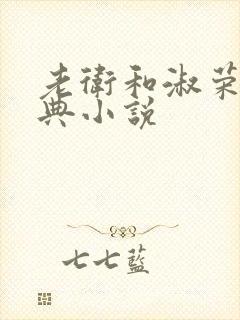 老衛和淑荣
典小說
七七藍